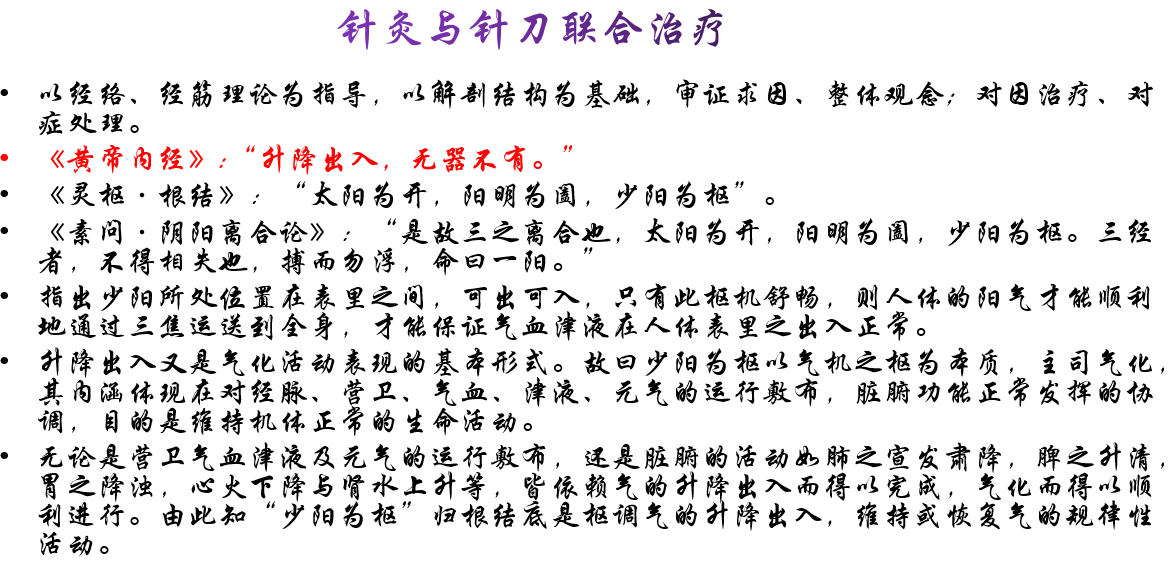 针灸与针刀联合治疗
• 以经络、经筋理论为指导，以解剖结构为基础，审证求因、整体观念；对因治疗、对
症处理。
• 《黄帝内经》：“升降出入，无器不有。”
• 《灵枢·根结》：“太阳为开，阳明为阖，少阳为枢”。
• 《素问·阴阳离合论》：“是故三之离合也，太阳为开，阳明为阖，少阳为枢。三经
者，不得相失也，搏而勿浮，命曰一阳。”
• 指出少阳所处位置在表里之间，可出可入，只有此枢机舒畅，则人体的阳气才能顺利
地通过三焦运送到全身，才能保证气血津液在人体表里之出入正常。
• 升降出入又是气化活动表现的基本形式。故曰少阳为枢以气机之枢为本质，主司气化，
其内涵体现在对经脉、营卫、气血、津液、元气的运行敷布，脏腑功能正常发挥的协
调，目的是维持机体正常的生命活动。
• 无论是营卫气血津液及元气的运行敷布，还是脏腑的活动如肺之宣发肃降，脾之升清，
胃之降浊，心火下降与肾水上升等，皆依赖气的升降出入而得以完成，气化而得以顺
利进行。由此知“少阳为枢”归根结底是枢调气的升降出入，维持或恢复气的规律性
活动。